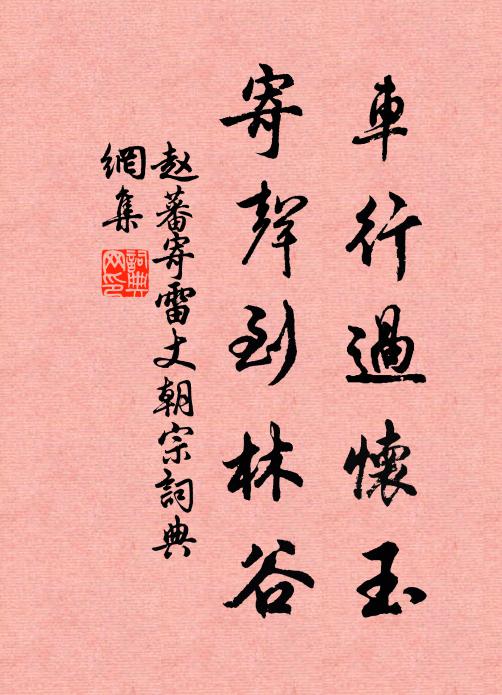 車行過懷玉
寄聲到林谷
赵蕃寄雷丈朝宗詞典
網集
詞典
网印